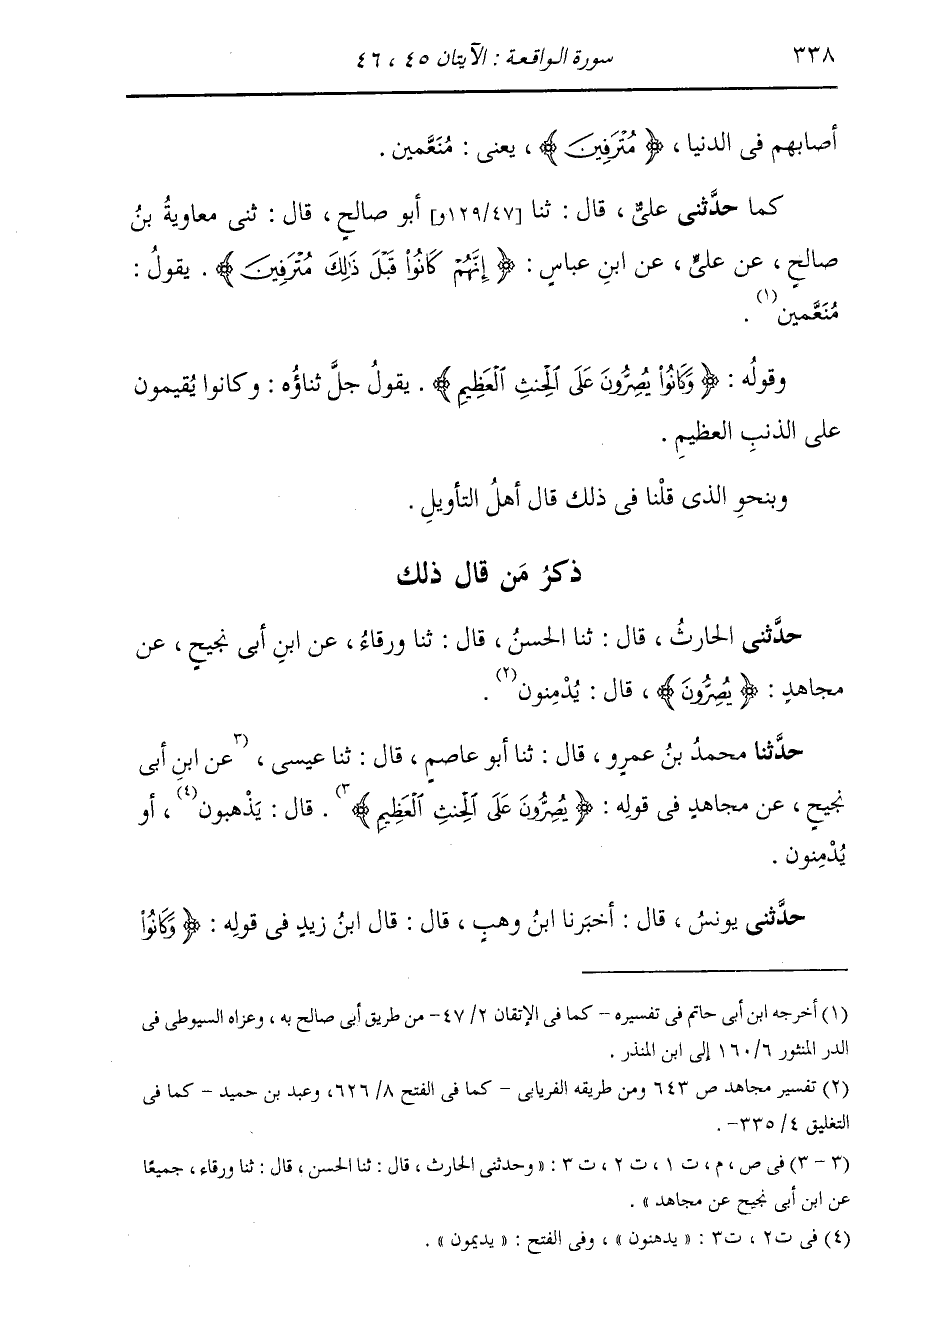 ٣٣٨ سورة الواقعة : الآيتان ٤٥ ، ٤٦
أصابهم فى الدنيا ، ﴿ مُتْرَفِينَ ﴾ ، يعنى : مُنَعَّمين .
كما حدَّثنى علىٌّ ، قال : ثنا [١٢٩/٤٧و] أبو صالحٍ ، قال : ثنى معاويةُ بنُ
صالحٍ ، عن علىٍّ ، عن ابنِ عباسٍ : ﴿ إِنَّهُمْ كَانُوا۟ قَبْلَ ذَٰلِكَ مُتْرَفِينَ ﴾ . يقولُ :
مُنَعَّمين(١) .
وقولُه : ﴿ وَكَانُوا۟ يُصِرُّونَ عَلَى ٱلْحِنثِ ٱلْعَظِيمِ ﴾ . يقولُ جلَّ ثناؤُه : وكانوا يُقيمون
على الذنبِ العظيمِ .
وبنحوِ الذى قلْنا فى ذلك قال أهلُ التأويلِ .
ذكرُ مَن قال ذلك
حدَّثنى الحارثُ ، قال : ثنا الحسنُ ، قال : ثنا ورقاءُ ، عن ابنِ أبى نجيحٍ ، عن
مجاهدٍ : ﴿ يُصِرُّونَ ﴾ ، قال : يُدْمِنون(٢) .
حدَّثنا محمدُ بنُ عمرٍو ، قال : ثنا أبو عاصمٍ ، قال : ثنا عيسى ، (٣عن ابنِ أبى
نجيحٍ ، عن مجاهدٍ فى قولِه : ﴿ يُصِرُّونَ عَلَى ٱلْحِنثِ ٱلْعَظِيمِ ﴾٣) . قال : يَذْهبون(٤) ، أو
يُدْمِنون .
حدَّثنى يونسُ ، قال : أخبَرنا ابنُ وهبٍ ، قال : قال ابنُ زيدٍ فى قولِه : ﴿ وَكَانُوا۟
(١) أخرجه ابن أبى حاتم فى تفسيره – كما فى الإتقان ٢/ ٤٧– من طريق أبى صالح به ، وعزاه السيوطى فى
الدر المنثور ٦/ ١٦٠ إلى ابن المنذر .
(٢) تفسير مجاهد ص ٦٤٣ ومن طريقه الفريابى – كما فى الفتح ٨/ ٦٢٦، وعبد بن حميد – كما فى
التغليق ٤/ ٣٣٥– .
(٣ – ٣) فى ص ، م ، ت ١ ، ت ٢ ، ت ٣ : « وحدثنى الحارث ، قال : ثنا الحسن ، قال : ثنا ورقاء ، جميعًا
عن ابن أبى نجيح عن مجاهد » .
(٤) فى ت٢ ، ت٣ : « يدهنون » ، وفى الفتح : « يديمون » .